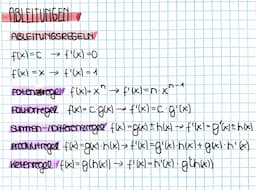 ABLEITUNGEN
ABLEITUNGSREGELN
f(x)=c → f'(x)=0
f(x)=x → f'(x)=1
Potenzregel f(x)=xⁿ → f'(x)=n·xⁿ⁻¹
Faktorregel f(x)=c·g(x) → f'(x)=c·g'(x)
Summen-/Differenzregel f(x)=g(x)±h(x) → f'(x)=g'(x)±h(x)
Produktregel f(x)=g(x)·h(x) → f'(x)=g'(x)·h(x)+g(x)·h'(x)
Kettenregel f(x)=g(h(x)) → f'(x)=h'(x)·g'(h(x))